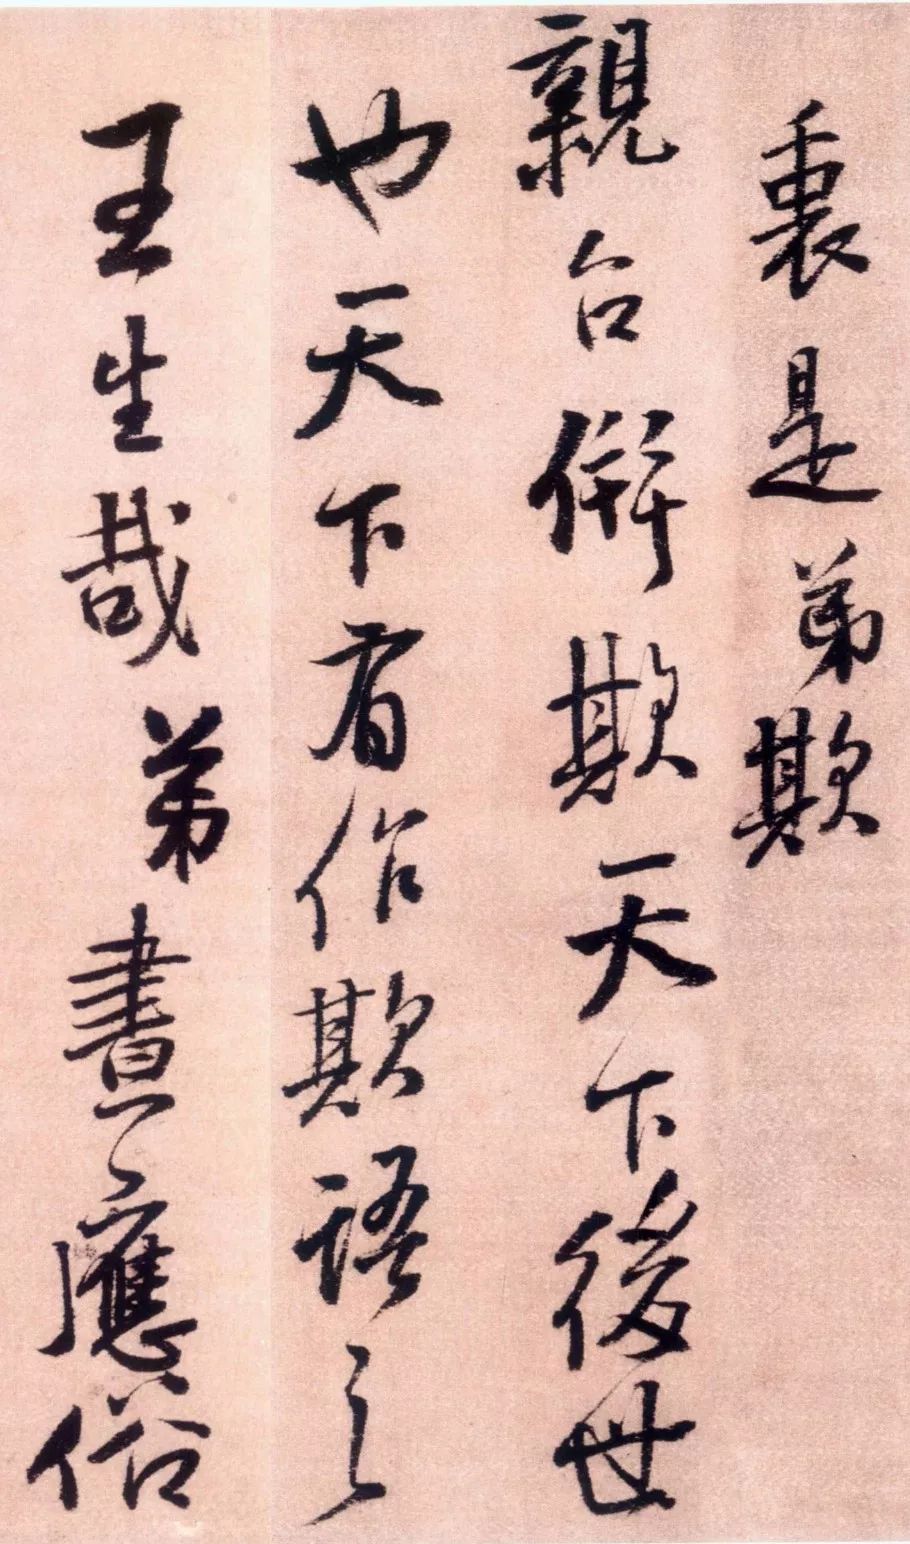 裏是弟欺
親台併欺天下後世
也天下有作欺語之
王生哉弟晝應俗